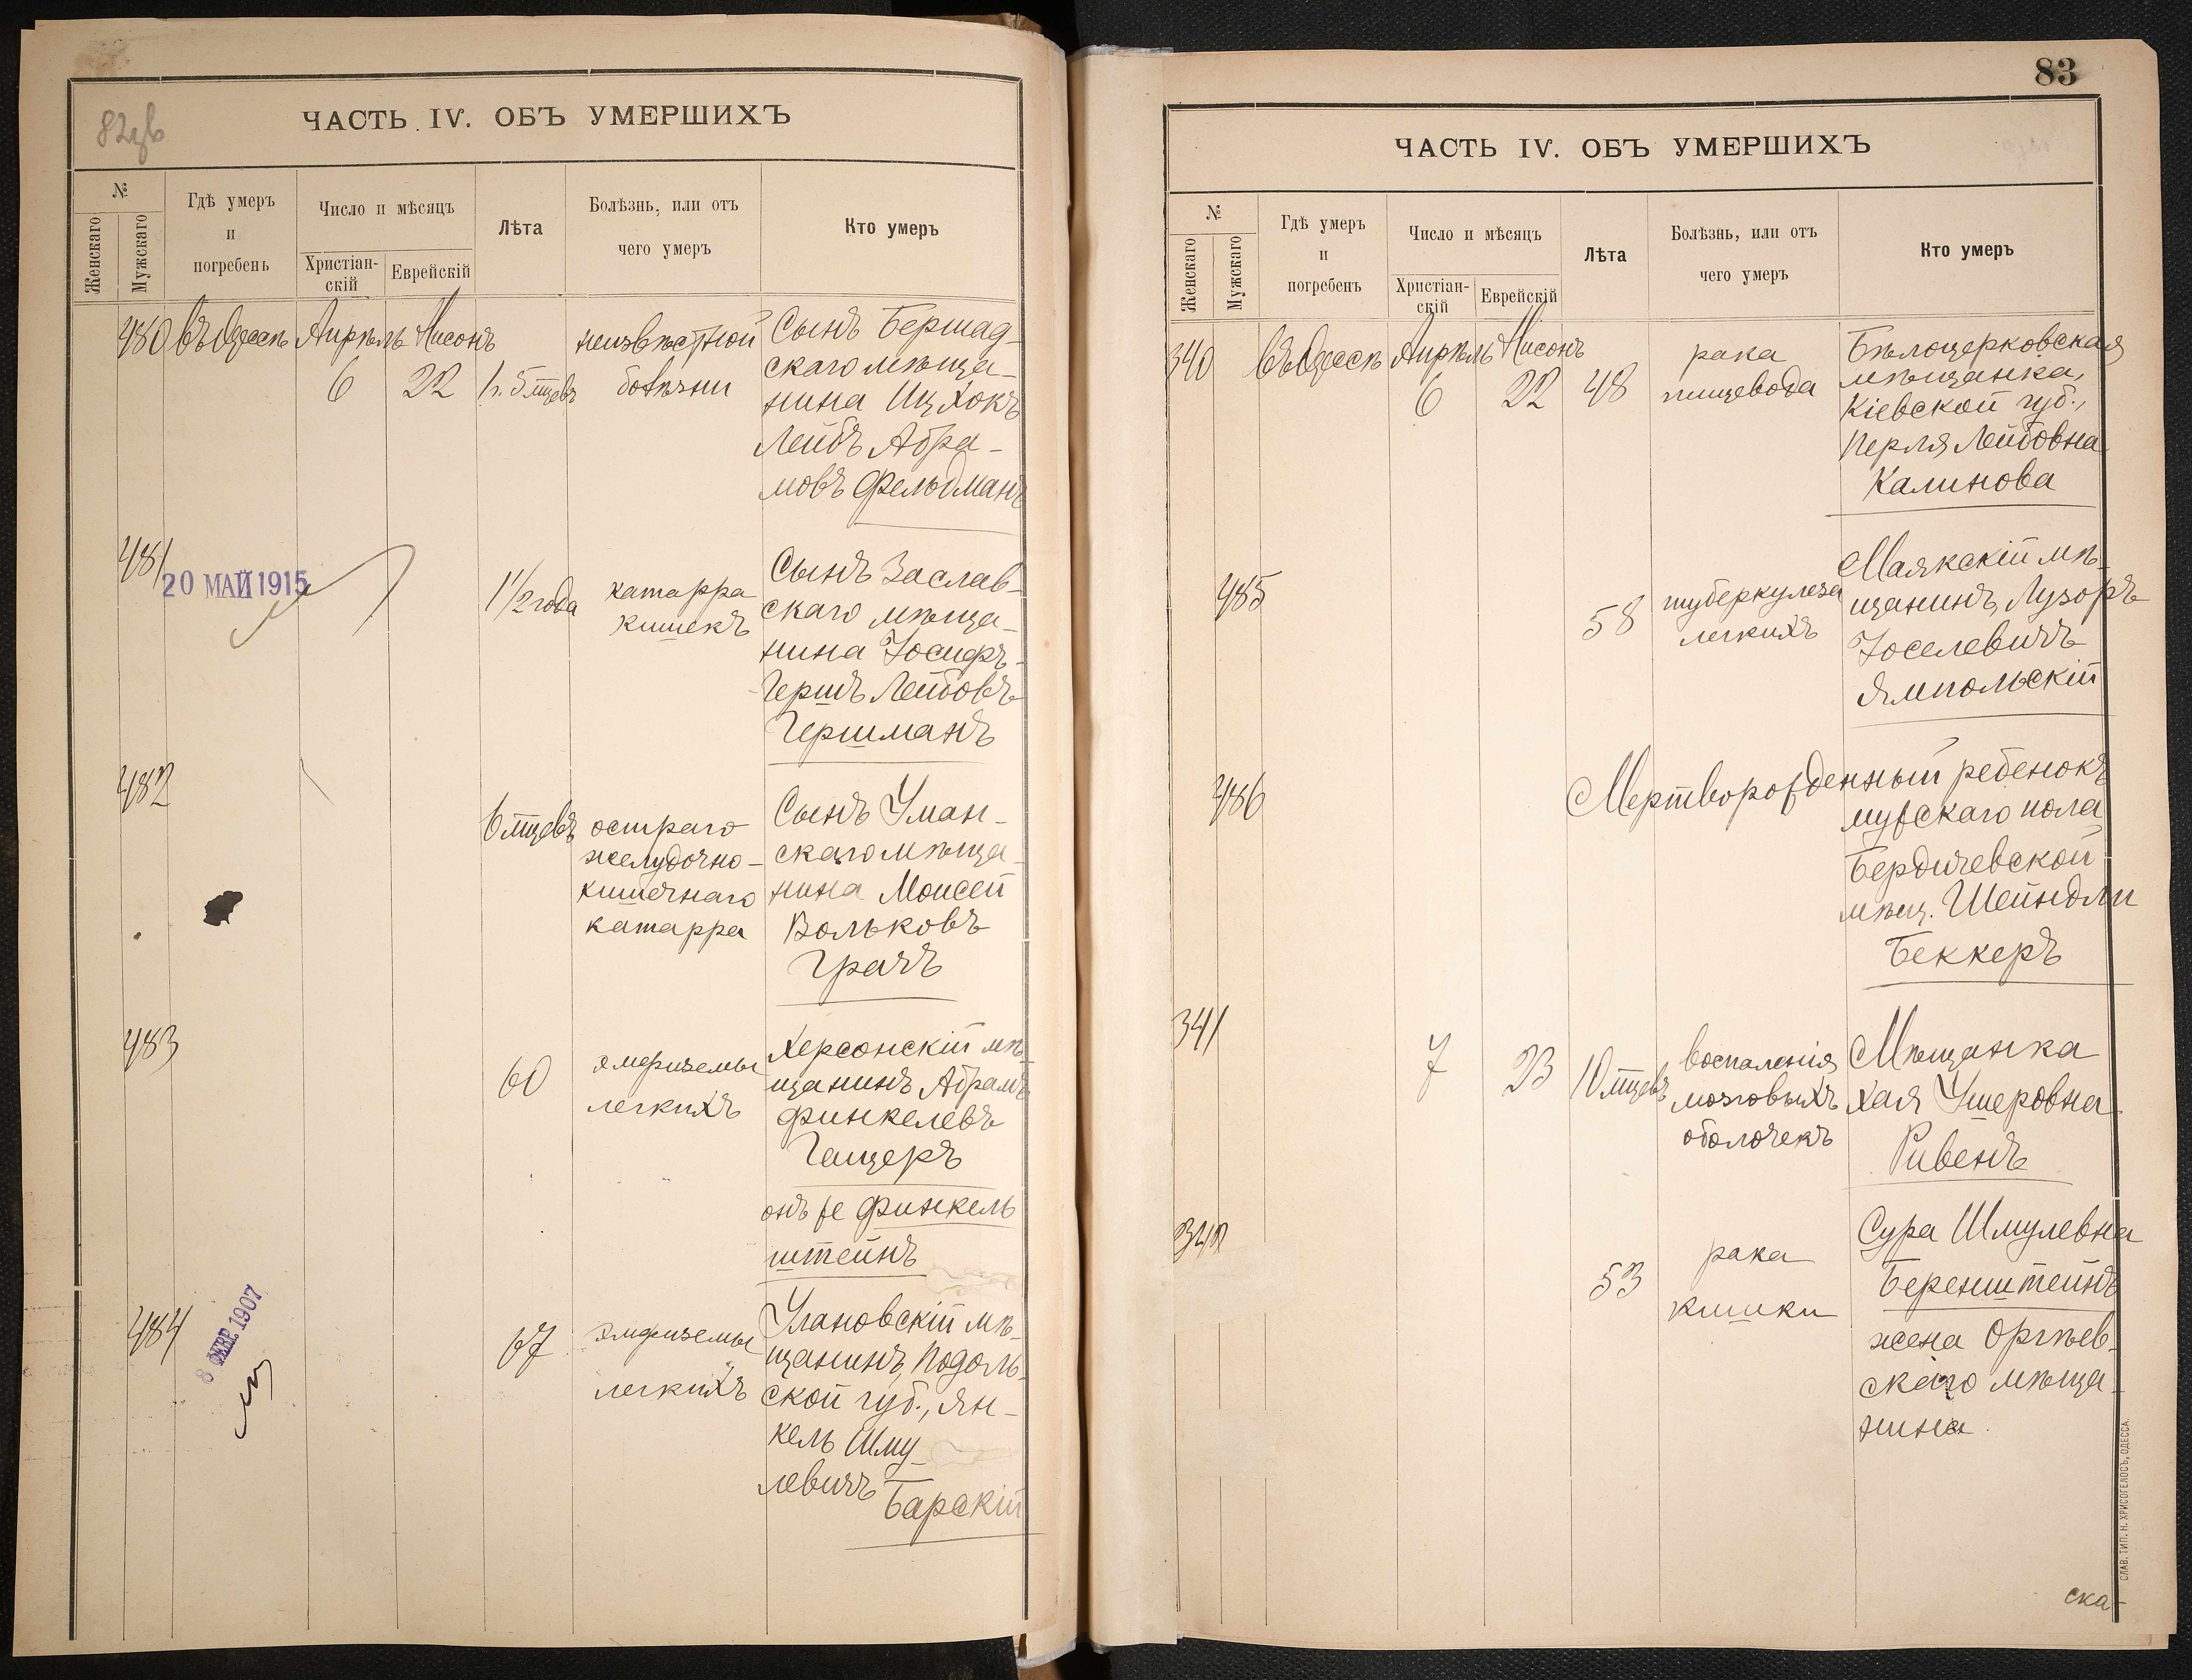 82об
ЧАСТЬ IV. ОБЪ УМЕРШИХЪ
№
Женскаго
Мужскаго
Гдѣ умеръ
и
погребенъ
Число и мѣсяцъ
Христіан-
скій
Еврейскій
Лѣта
Болѣзнь, или отъ
чего умеръ
Кто умеръ
480 въ Одессѣ Апрѣль Нисонъ
6 22 1 г. 5 мцевъ
неизвѣстной
болѣзни
Сынъ Бершад-
скаго мѣща-
нина Ицхокъ
Лейбъ Абра-
мовъ Фельдманъ
481
20 МАЙ 1915
1 1/2 года
катарра
кишекъ
Сынъ Заслав-
скаго мѣща-
нина Іосифъ-
Гершъ Лейбовъ
Гершманъ
482
6 мцевъ
остраго
желудочно-
кишечнаго
катарра
Сынъ Уман-
скаго мѣща-
нина Моисей
Вольковъ
Грачъ
483
60
эмфиземы
легкихъ
Херсонскій мѣ-
щанинъ Абрамъ
Финкелевъ
Гащеръ
онъ же Финкель
штейнъ
484
8 ФЕВР. 1907
67
эмфиземы
легкихъ
Улановскій мѣ-
щанинъ, Подоль-
ской губ., Ян-
кель Шму-
левичъ
Барскій
83
ЧАСТЬ IV. ОБЪ УМЕРШИХЪ
№
Женскаго
Мужскаго
Гдѣ умеръ
и
погребенъ
Число и мѣсяцъ
Христіан-
скій
Еврейскій
Лѣта
Болѣзнь, или отъ
чего умеръ
Кто умеръ
340 въ Одессѣ Апрѣль Нисонъ
6 22 48
рака
пищевода
Бѣлоцерковская
мѣщанка,
Кіевской губ.,
Перля Лейбовна
Калинова
485
58
туберкулеза
легкихъ
Маякскій мѣ-
щанинъ, Лузоръ
Іоселевичъ
Ямпольскій
486
Мертворожденный ребенокъ
мужскаго пола
Бердичевской
мѣщ. Шейндли
Беккеръ
341
7 23 10 мцевъ
воспаленія
мозговыхъ
оболочекъ
Мѣщанка
Хая Ушеровна
Ривенъ
342
53
рака
кишки
Сура Шмулевна
Беренштейнъ
жена Оргѣев-
скаго мѣща-
нина.
ска-
СЛАВ. ТИП. Н. ХРИСОГЕЛОСЪ, ОДЕССА.